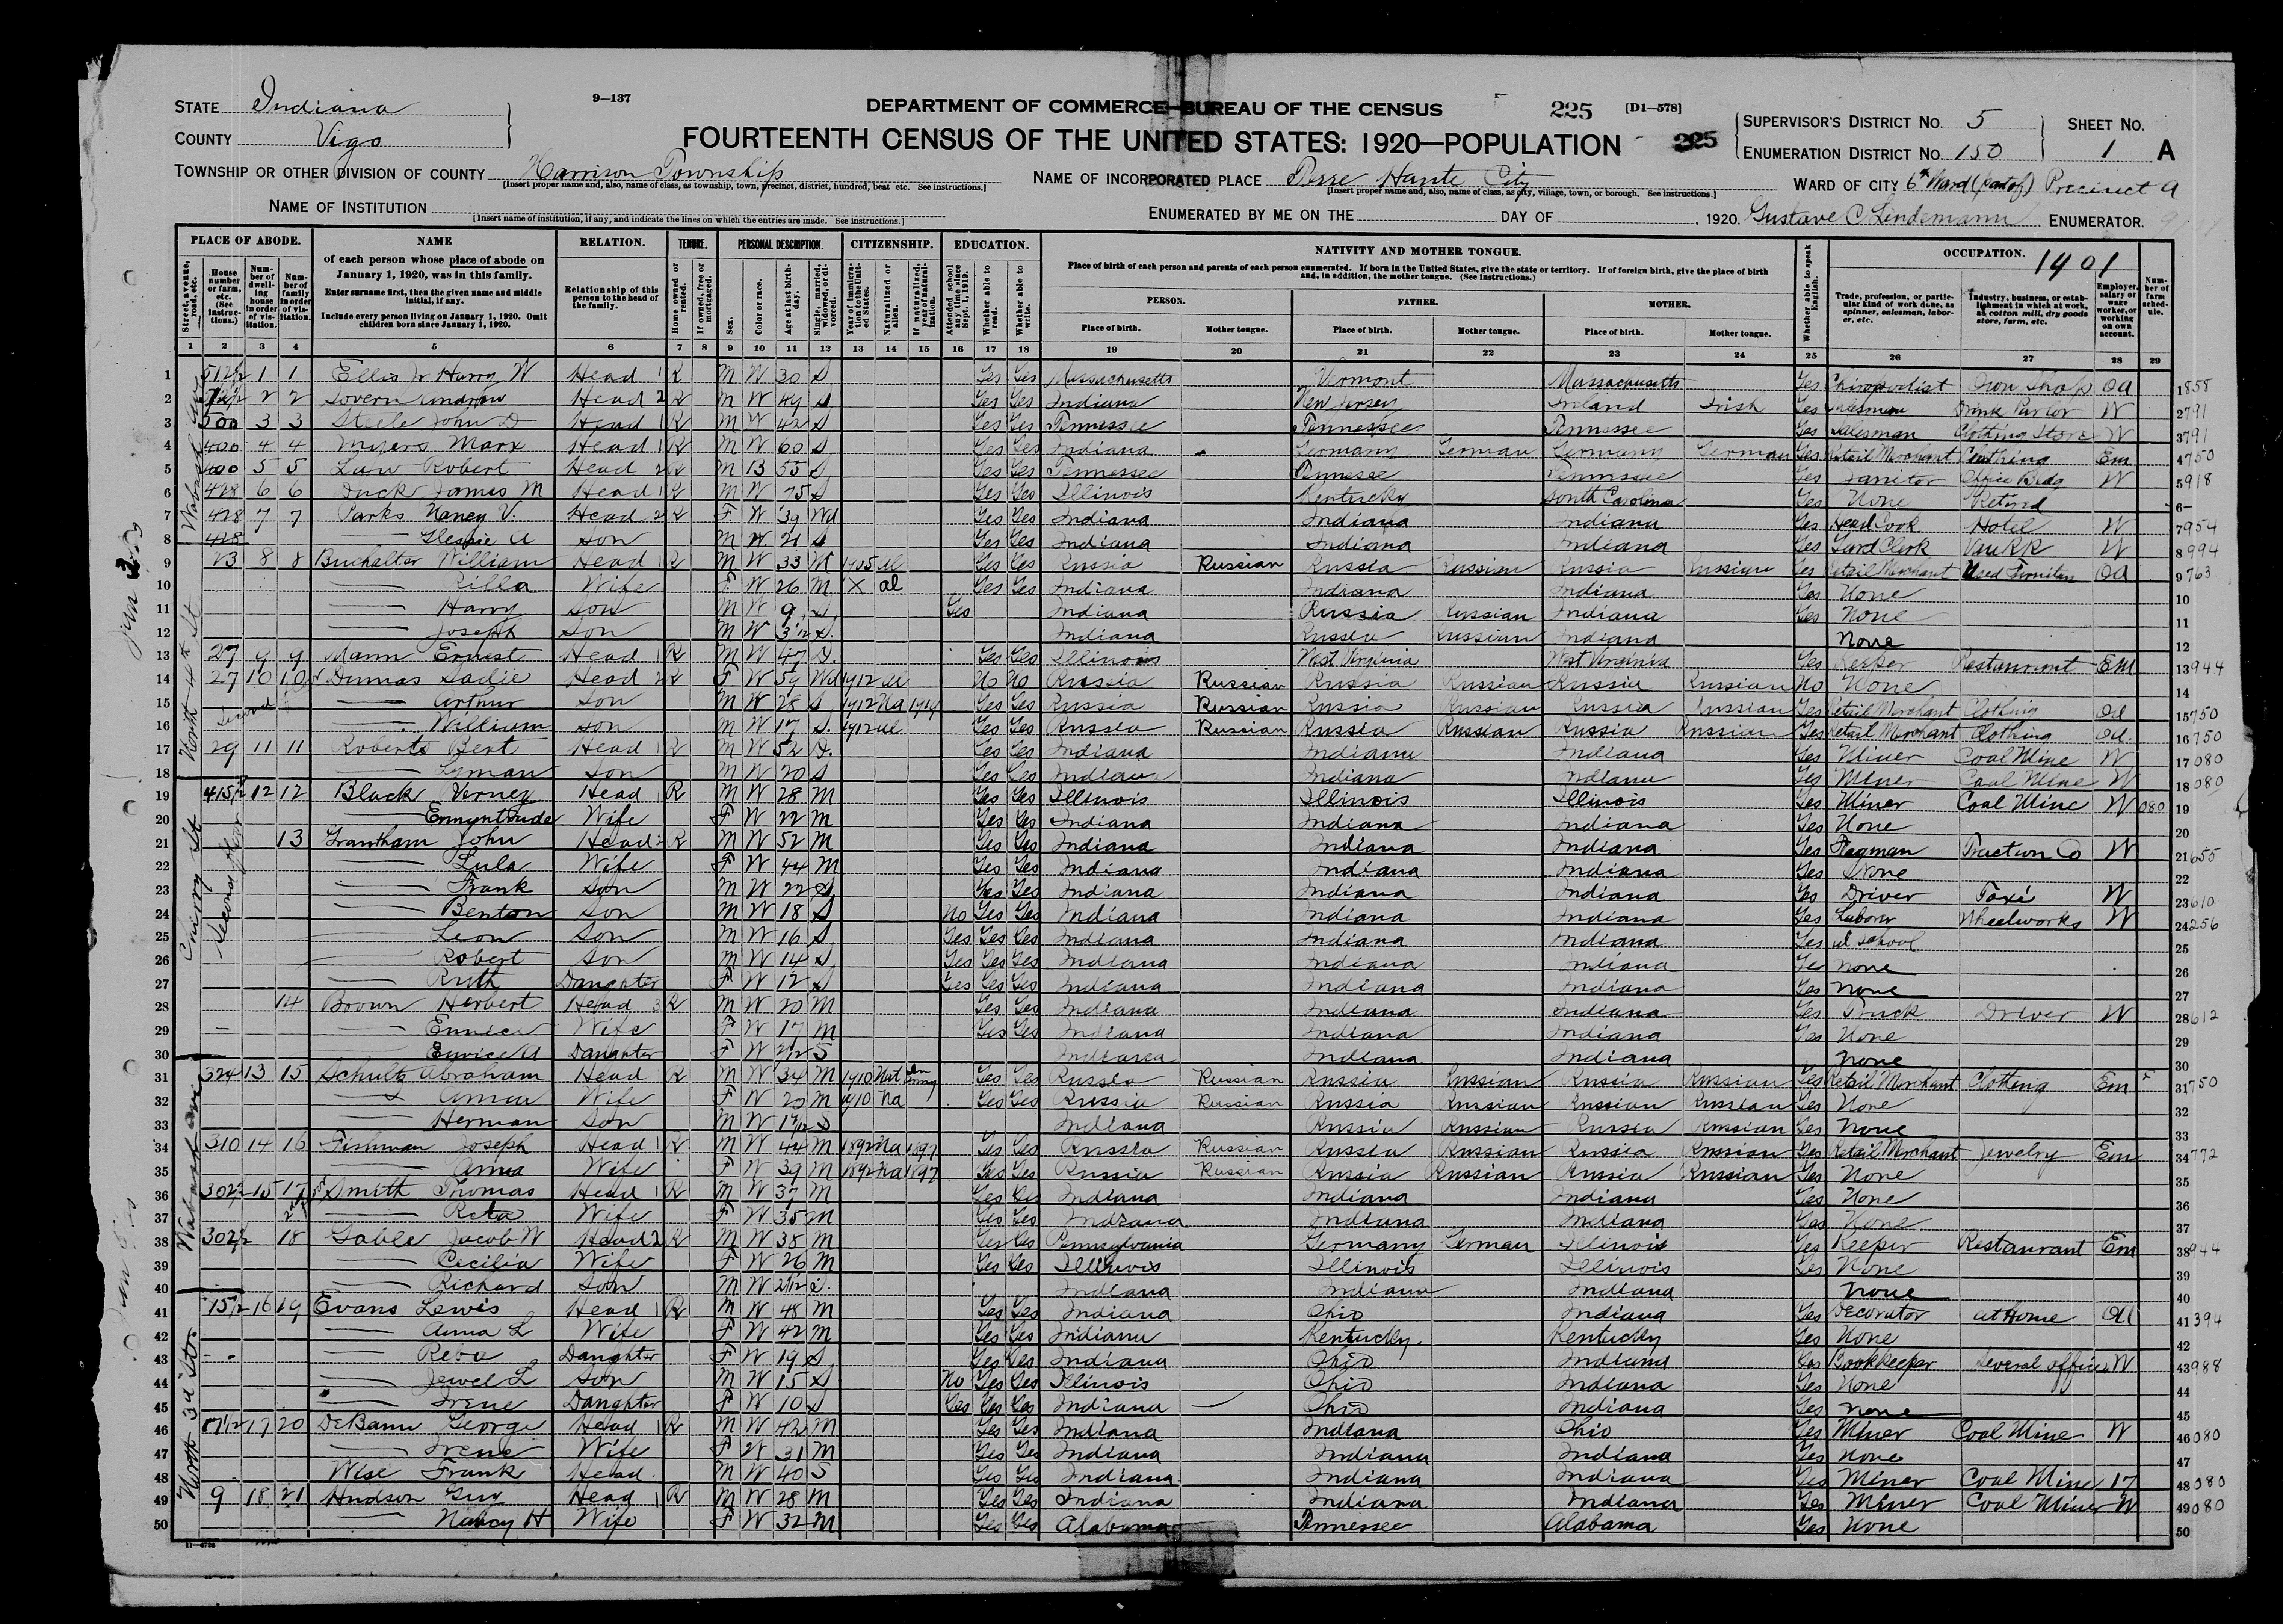 STATE Indiana
9—137
DEPARTMENT OF COMMERCE—BUREAU OF THE CENSUS
225 [D1—578]
COUNTY Vigo
FOURTEENTH CENSUS OF THE UNITED STATES: 1920—POPULATION 225
SUPERVISOR'S DISTRICT No. 5
ENUMERATION DISTRICT No. 150
SHEET No. 1 A
TOWNSHIP OR OTHER DIVISION OF COUNTY Harrison Township
[Insert proper name and, also, name of class, as township, town, precinct, district, hundred, beat etc. See instructions.]
NAME OF INCORPORATED PLACE Terre Haute City
[Insert proper name and, also, name of class, as city, village, town, or borough. See instructions.]
WARD OF CITY 6th Ward (part of) Precinct A
NAME OF INSTITUTION
[Insert name of institution, if any, and indicate the lines on which the entries are made. See instructions.]
ENUMERATED BY ME ON THE DAY OF , 1920. Gustave C Lindemann, ENUMERATOR.
PLACE OF ABODE. NAME RELATION. TENURE. PERSONAL DESCRIPTION. CITIZENSHIP. EDUCATION. NATIVITY AND MOTHER TONGUE. OCCUPATION. 1401
of each person whose place of abode on January 1, 1920, was in this family.
Enter surname first, then the given name and middle initial, if any.
Include every person living on January 1, 1920. Omit children born since January 1, 1920.
Relationship of this person to the head of the family.
Place of birth of each person and parents of each person enumerated. If born in the United States, give the state or territory. If of foreign birth, give the place of birth and, in addition, the mother tongue. (See instructions.)
PERSON. FATHER. MOTHER.
Place of birth. Mother tongue. Place of birth. Mother tongue. Place of birth. Mother tongue.
1 2 3 4 5 6 7 8 9 10 11 12 13 14 15 16 17 18 19 20 21 22 23 24 25 26 27 28 29
1 512½ 1 1 Ellis Jr Harry W Head R M W 30 S Yes Yes Massachusetts Vermont Massachusetts Yes Chiropodist Own Shop OA 1858
2 2 2 Head R M W 49 S Yes Yes Indiana New Jersey Ireland Irish Yes Salesman Drink Parlor W 2791
3 500 3 3 Steele John D Head R M W 42 S Yes Yes Tennessee Tennessee Tennessee Yes Salesman Clothing Store W 3791
4 400 4 4 Myers Marx Head R M W 60 S Yes Yes Indiana Germany German Germany German Yes Retail Merchant Clothing Em 4750
5 400 5 5 Law Robert Head R M B 55 S Yes Yes Tennessee Tennessee Tennessee Yes Janitor Office Bldg W 5918
6 428 6 6 Duck James M Head R M W 75 S Yes Yes Illinois Kentucky South Carolina Yes None Retired 6—
7 428 7 7 Parks Nancy V. Head R F W 39 Wd Yes Yes Indiana Indiana Indiana Yes Head Cook Hotel W 7954
8 428 Glespie A Son M W 21 S Yes Yes Indiana Indiana Indiana Yes Yard Clerk Van RR W 8994
9 23 8 8 Buchalter William Head R M W 33 M 1905 Al Yes Yes Russia Russian Russia Russian Russia Russian Yes Retail Merchant Used Furniture OA 9763
10 Rilla Wife F W 26 M X al Yes Yes Indiana Indiana Indiana Yes None
11 Harry Son M W 9 S Yes Indiana Russia Russian Indiana Yes None
12 Joseph Son M W S. Indiana Russia Russian Indiana None
13 27 9 9 Mann Ernest Head R M W 47 D. Yes Yes Illinois West Virginia West Virginia Yes Keeper Restaurant Em 13944
14 27 10 10 Dumas Sadie Head R F W 59 Wd 1912 al No No Russia Russian Russia Russian Russia Russian No None
15 Arthur Son M W 28 S 1912 Na 1919 Yes Yes Russia Russian Russia Russian Russia Russian Yes Retail Merchant Clothing OA 15750
16 William Son M W 17 S. 1912 al Yes Yes Russia Russian Russia Russian Russia Russian Yes Retail Merchant Clothing OA 16750
17 29 11 11 Roberts Bert Head R M W 52 D. Yes Yes Indiana Indiana Indiana Yes Miner Coal Mine W 17080
18 Lyman Son M W 20 S Yes Yes Indiana Indiana Indiana Yes Miner Coal Mine W 18080
19 415½ 12 12 Black Verney Head R M W 28 M Yes Yes Illinois Illinois Illinois Yes Miner Coal Mine W 080 19
20 Ermyntrude Wife F W 22 M Yes Yes Indiana Indiana Indiana Yes None
21 13 Grantham John Head R M W 52 M Yes Yes Indiana Indiana Indiana Yes Flagman Traction Co W 21655
22 Lula Wife F W 44 M Yes Yes Indiana Indiana Indiana Yes None
23 Frank Son M W 22 S Yes Yes Indiana Indiana Indiana Yes Driver Taxi W 23610
24 Benton Son M W 18 S No Yes Yes Indiana Indiana Indiana Yes Laborer Wheelworks W 24256
25 Leon Son M W 16 S Yes Yes Yes Indiana Indiana Indiana Yes at school
26 Robert Son M W 14 S Yes Yes Yes Indiana Indiana Indiana Yes None
27 Ruth Daughter F W 12 S Yes Yes Yes Indiana Indiana Indiana Yes None
28 14 Brown Herbert Head R M W 20 M Yes Yes Indiana Indiana Indiana Yes Truck Driver W 28612
29 Eunice Wife F W 17 M Yes Yes Indiana Indiana Indiana Yes None
30 Eunice A Daughter F W 2/12 S Indiana Indiana Indiana None
31 324 13 15 Schultz Abraham Head R M W 34 M 1910 Nat Yes Yes Russia Russian Russia Russian Russia Russian Yes Retail Merchant Clothing Em 31750
32 Anna Wife F W 20 M 1910 Na Yes Yes Russia Russian Russia Russian Russia Russian Yes None
33 Herman Son M W S Indiana Russia Russian Russia Russian Yes None
34 310 14 16 Fishman Joseph Head R M W 44 M 1892 Na 1897 Yes Yes Russia Russian Russia Russian Russia Russian Yes Retail Merchant Jewelry Em 34772
35 Anna Wife F W 39 M 1892 Na 1897 Yes Yes Russia Russian Russia Russian Russia Russian Yes None
36 302½ 15 17 Smith Thomas Head R M W 37 M Yes Yes Indiana Indiana Indiana Yes None
37 Reta Wife F W 35 M Yes Yes Indiana Indiana Indiana Yes None
38 302½ 18 Gable Jacob W Head R M W 38 M Yes Yes Pennsylvania Germany German Illinois Yes Keeper Restaurant Em 38944
39 Cecilia Wife F W 26 M Yes Yes Illinois Illinois Illinois Yes None
40 Richard Son M W S. Indiana Indiana Indiana None
41 15½ 16 19 Evans Lewis Head R M W 48 M Yes Yes Indiana Ohio Indiana Yes Decorator at Home OA 41394
42 Anna L Wife F W 42 M Yes Yes Indiana Kentucky Kentucky Yes None
43 Reba Daughter F W 19 S Yes Yes Indiana Ohio Indiana Yes Bookkeeper Several offices W 43988
44 Jewel L Son M W 15 S No Yes Yes Illinois Ohio Indiana Yes None
45 Irene Daughter F W 10 S Yes Yes Yes Indiana Ohio Indiana Yes None
46 17½ 17 20 DeBaun George Head R M W 42 M Yes Yes Indiana Indiana Ohio Yes Miner Coal Mine W 46080
47 Irene Wife F W 31 M Yes Yes Indiana Indiana Indiana Yes None
48 Wise Frank Head M W 40 S Yes Yes Indiana Indiana Indiana Yes Miner Coal Mine 17 48080
49 9 18 21 Hudson Guy Head R M W 28 M Yes Yes Indiana Indiana Indiana Yes Miner Coal Miner W 49080
50 Nancy H Wife F W 32 M Yes Yes Alabama Tennessee Alabama Yes None
11—6725